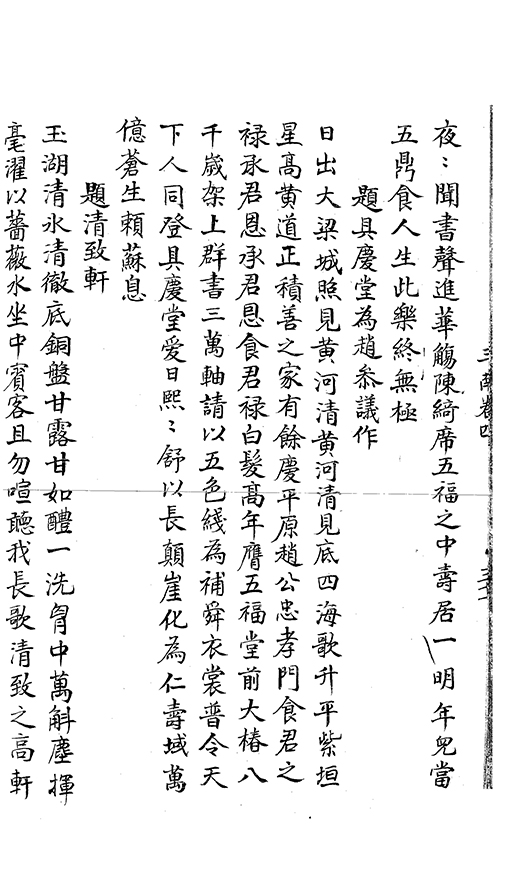 夜〻聞書聲進華觴陳綺席五福之中壽居一明年兒當
五鼎食人生此樂終無極
題具慶堂為趙叅議作
日出大梁城照見黄河清黄河清見底四海歌升平紫垣
星髙黄道正積善之家有餘慶平原趙公忠孝門食君之
禄承君恩承君恩食君禄白髮髙年膺五福堂前大椿八
千歲架上群書三萬軸請以五色綫為補舜衣裳普令天
下人同登具慶堂愛日熙〻舒以長顛崖化為仁壽域萬
億蒼生賴蘇息
題清致軒
玉湖清氷清徹底銅盤甘露甘如醴一洗胷中萬斛塵揮
毫濯以薔薇水坐中賓客且勿喧聽我長歌清致之高軒